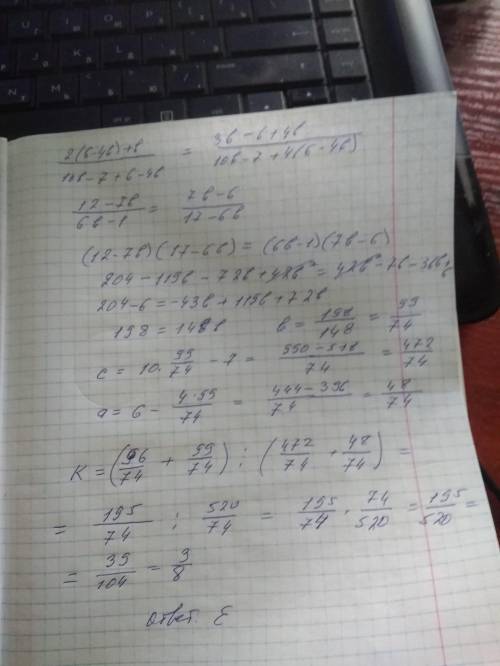 2(6-4b)+b / 10b-7+6-4b = 3b-6+4b / 10b-7+4(6-4b)
12-7b / 6b-1 = 7b-6 / 17-6b
(12-7b)(17-6b)=(6b-1)(7b-6)
204-119b-72b+42b²=42b²-7b-36b+6
204-6=-43b+119b+72b
198=148b b=198/148=99/74
c=10·99/74-7=990-518/74=472/74
a=6-4·99/74=444-396/74=48/74
K=(96/74+99/74):(472/74+48/74)=
=195/74:520/74=195/74·74/520=195/520=
=39/104=3/8
Ответ: E